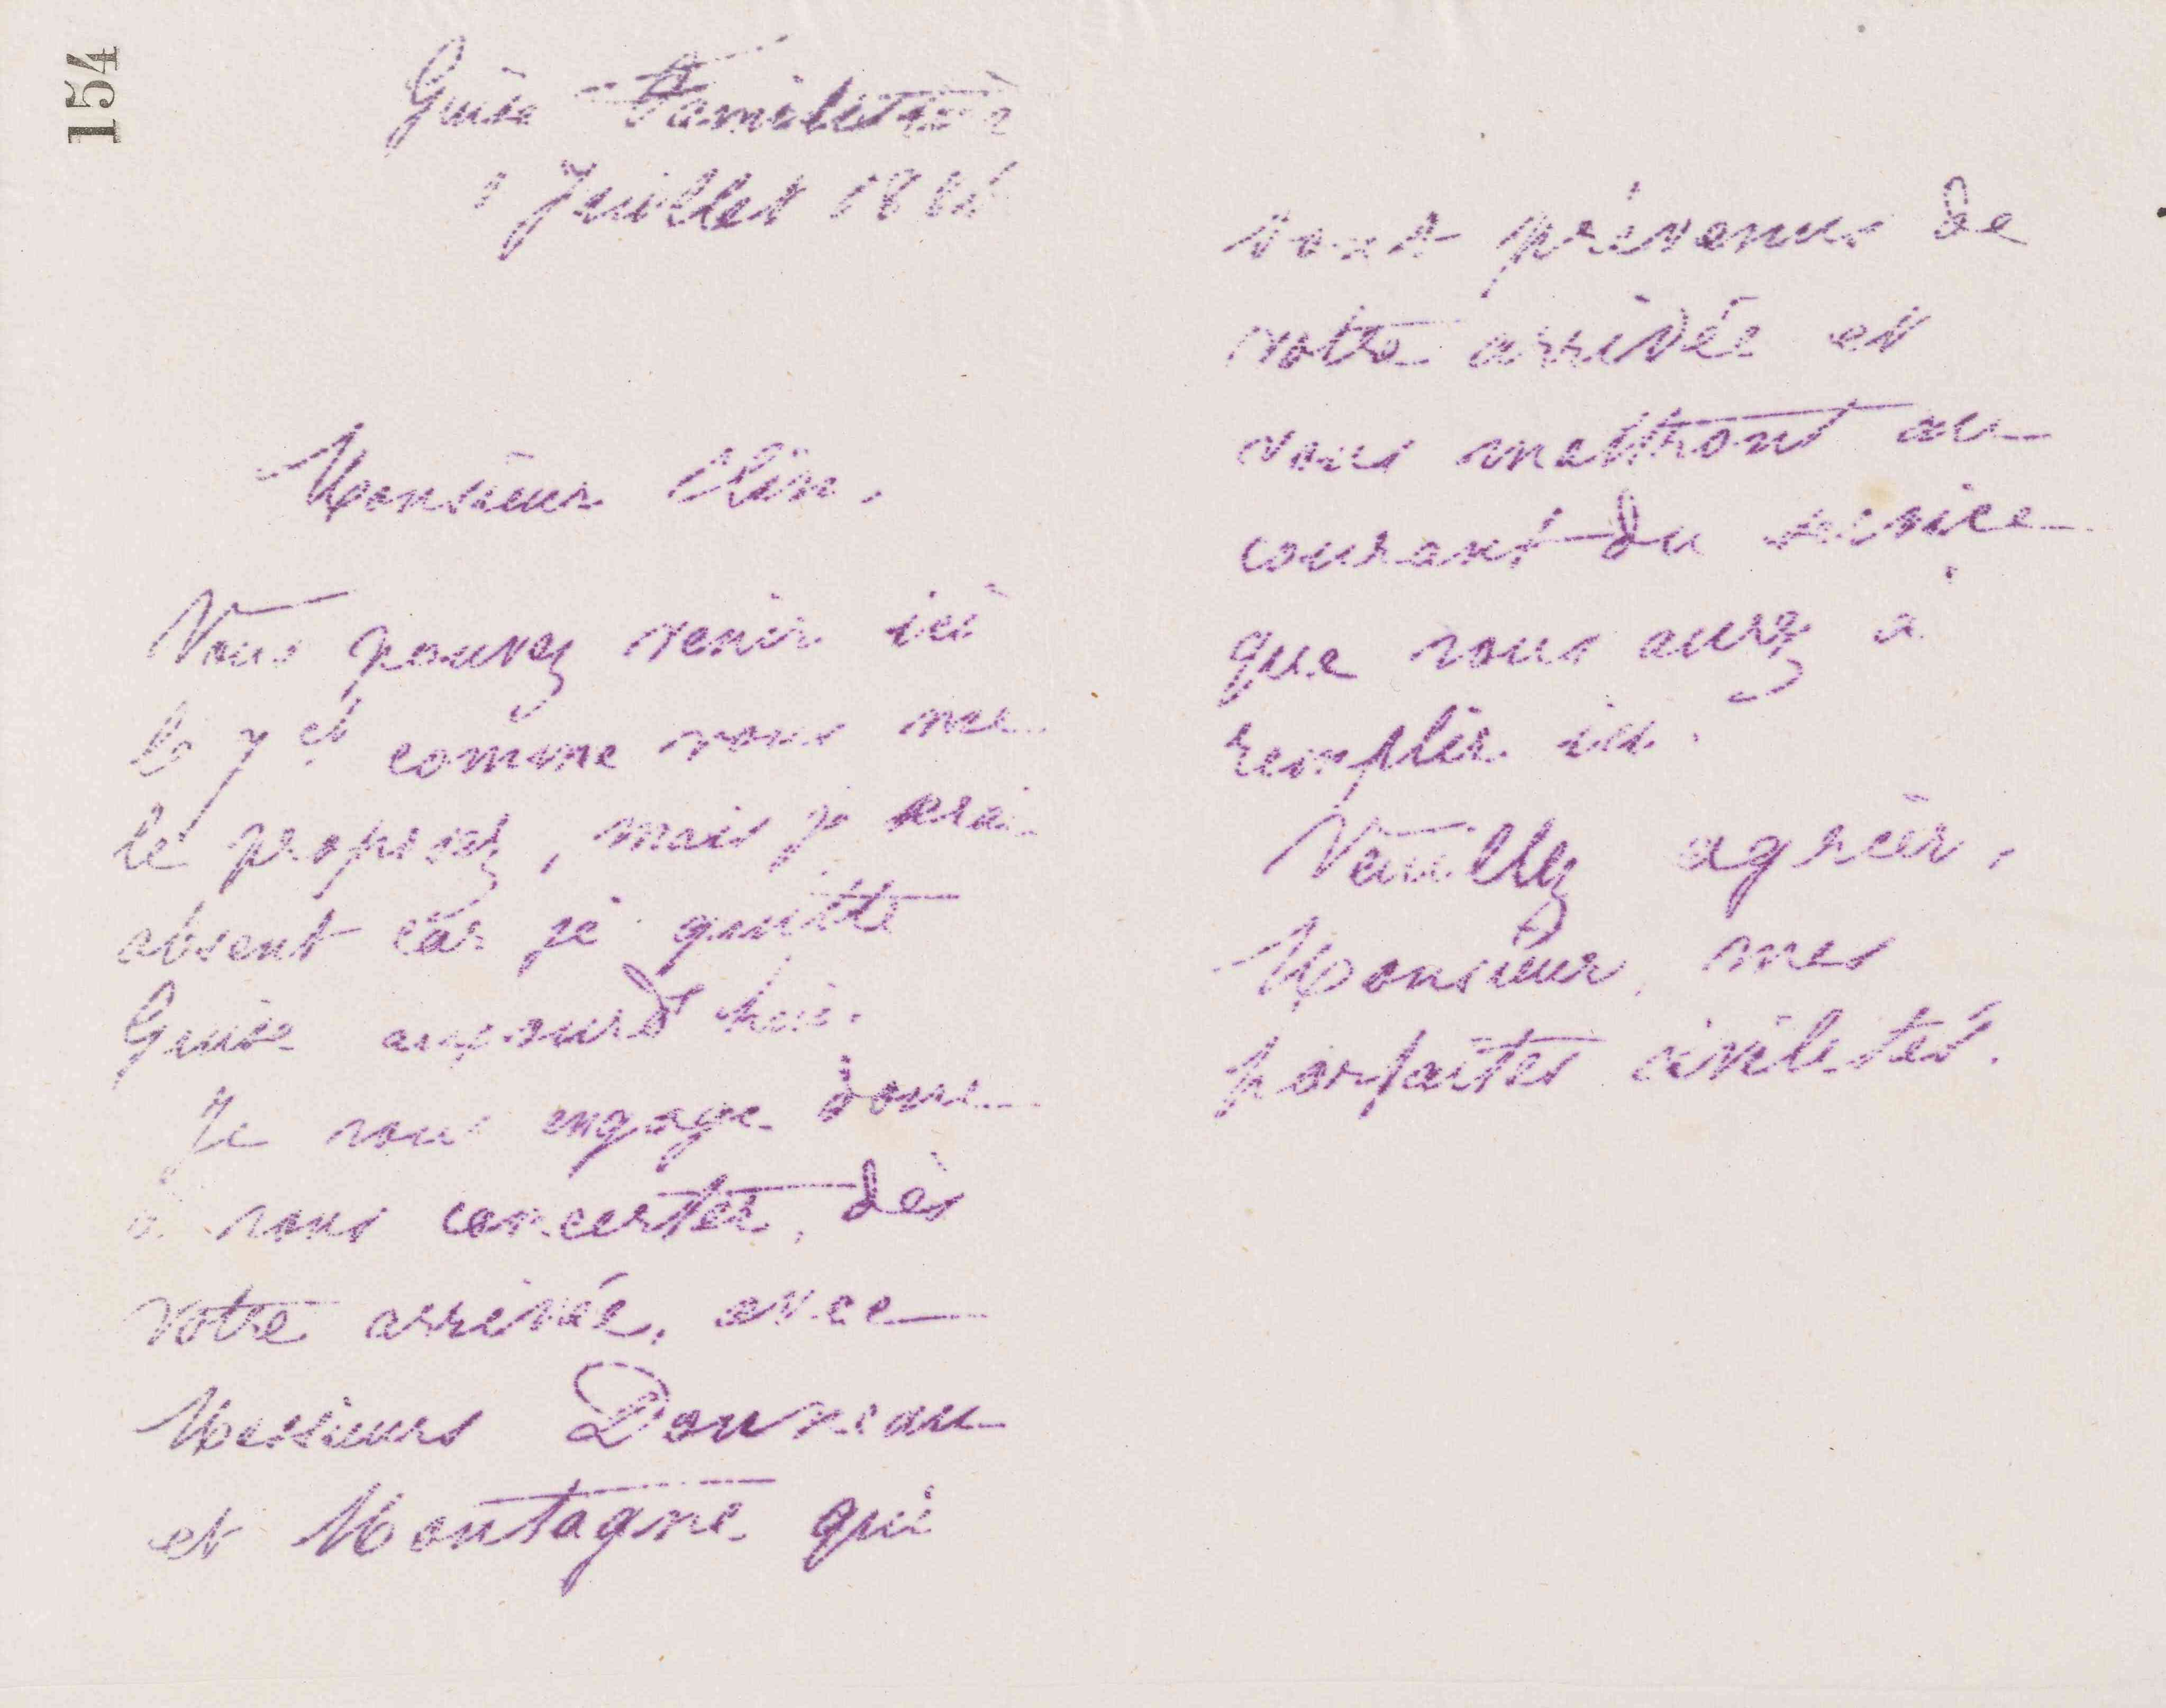 154
Guise Familistère
1 Juillet 188
Monsieur Clin.
Vous pouvez venir ici
le 7 ct comme vous me
le proposez, mais je serai
absent car je quitte
Guise aujourd'hui.
Je vous engage donc
à vous concerter, dès
votre arrivée, avec
Messieurs Donneau
et Montagne qui
sont prévenus de
votre arrivée et
vous mettront au
courant du service
que vous aurez à
remplir ici.
Veuillez agréer,
Monsieur, mes
parfaites civilités.